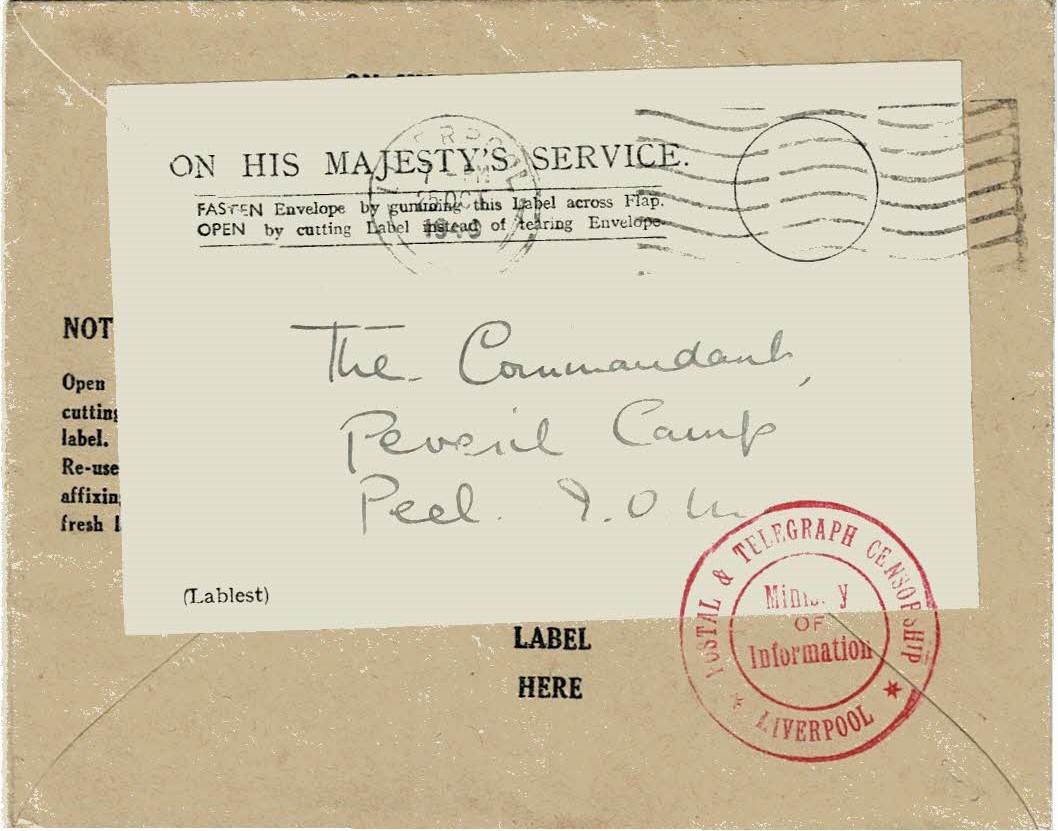 ON HIS MAJESTY'S SERVICE.
FASTEN Envelope by gumming this Label across Flap.
OPEN by cutting Label instead of tearing Envelope
25 OCT
NOT
Open
cutting
label.
Re-use
affixin
fresh l
The Commandant,
Peveril Camp
Peel. I.O.M.
(Lablest)
LABEL
HERE
POSTAL & TELEGRAPH CENSORSHIP
OF
Information
LIVERPOOL